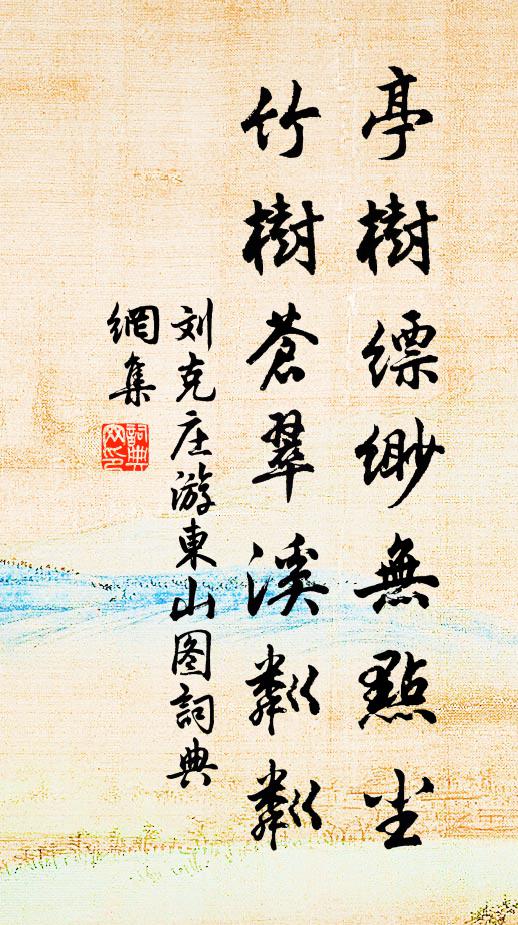 亭樹缥缈無點尘
竹樹蒼翠溪粼粼
刘克庄游東山图詞典
網集
詞典